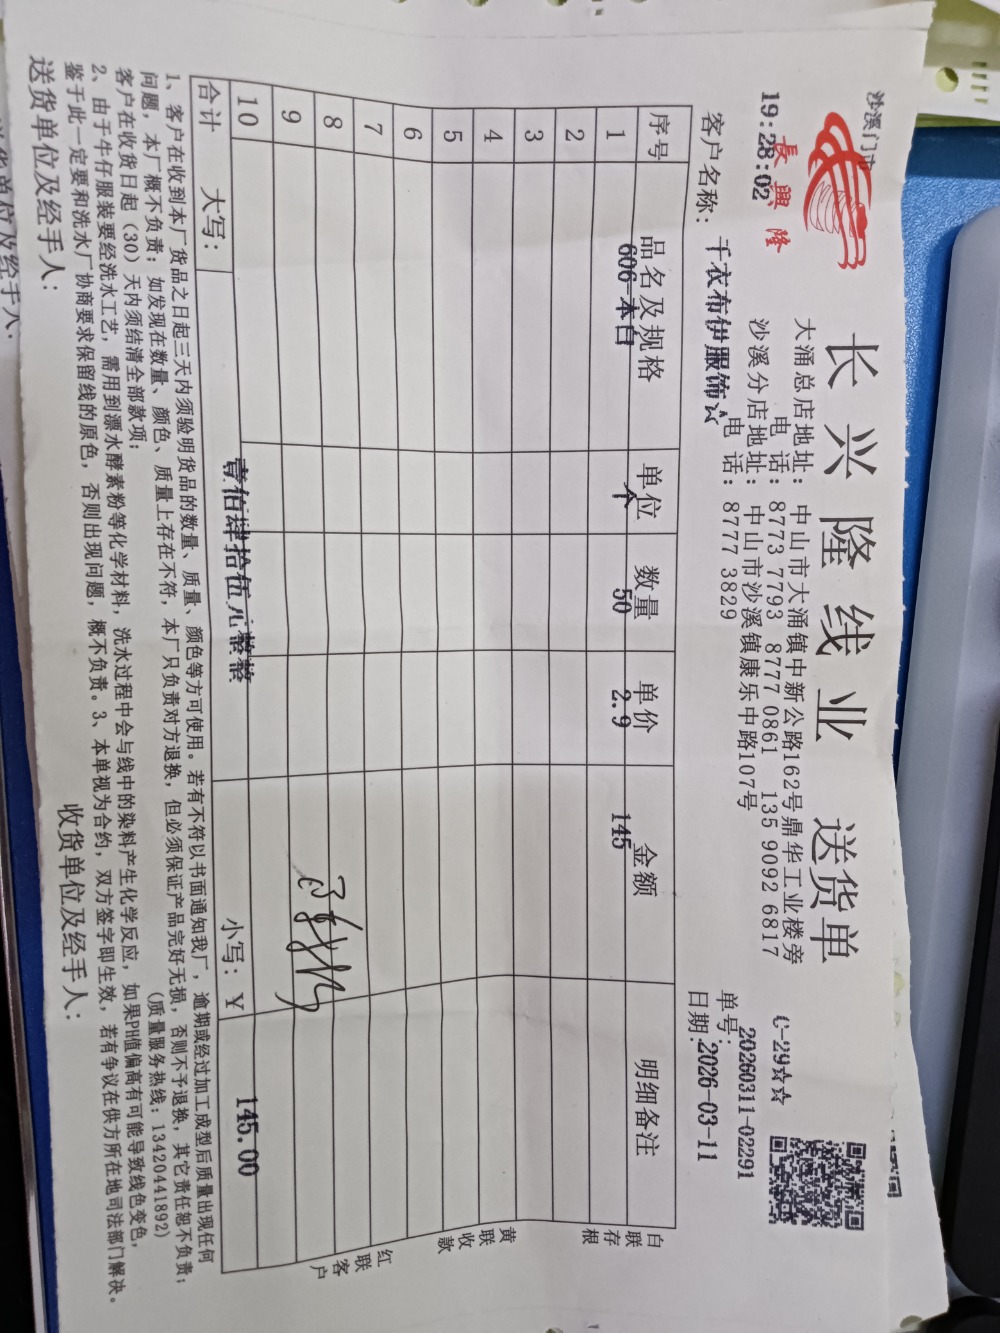 沙溪门市
19:28:02
長興隆
长兴隆线业 送货单
大涌总店地址：中山市大涌镇中新公路162号鼎华工业楼旁
电 话：8773 7793 8777 0861 135 9092 6817
沙溪分店地址：中山市沙溪镇康乐中路107号
电 话：8777 3829
C-29☆☆
单号：20260311-02291
客户名称：千衣布伊服饰☆
日期：2026-03-11
序号 品名及规格 单位 数量 单价 金额 明细备注
1 606-本白 个 50 2.9 145
2
3
4
5
6
7
8
9
10
合计 大写：壹佰肆拾伍元整整 小写：¥ 145.00
白联存根
黄联收款
红联客户
1、客户在收到本厂货品之日起三天内须验明货品的数量、质量、颜色等方可使用。若有不符以书面通知我厂，逾期或经过加工成型后质量出现任何
问题，本厂概不负责；如发现在数量、颜色、质量上存在不符，本厂只负责对方退换，但必须保证产品完好无损，否则不予退换，其它责任恕不负责；
客户在收货日起（30）天内须结清全部款项； （质量服务热线：13420441892）
2、由于牛仔服装要经洗水工艺，需用到漂水酵素粉等化学材料，洗水过程中会与线中的染料产生化学反应，如果PH值偏高有可能导致线色变色，
鉴于此一定要和洗水厂协商要求保留线的原色，否则出现问题，概不负责。3、本单视为合约，双方签字即生效，若有争议在供方所在地司法部门解决。
送货单位及经手人： 收货单位及经手人：
送货单位及经手人：